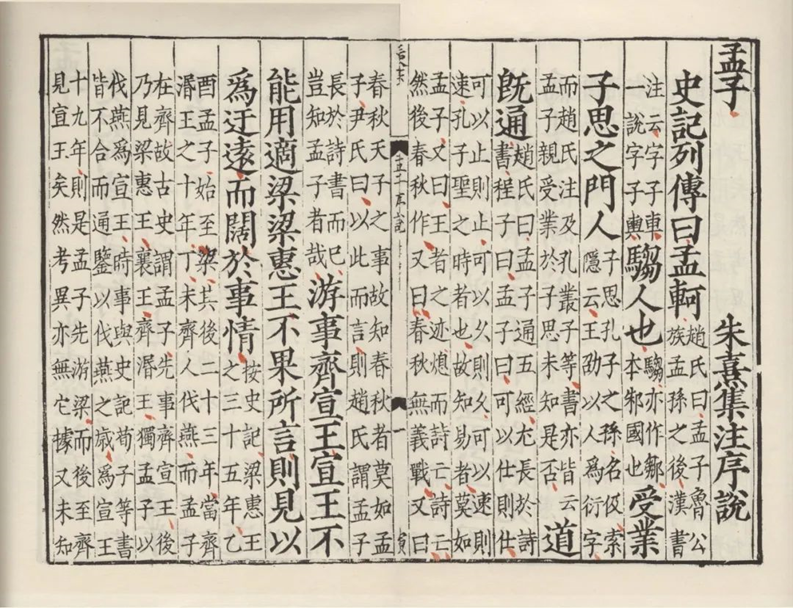 孟子
朱熹集注序說
史記列傳曰孟軻趙氏曰孟子魯公族孟孫之後漢書
注云字子車一說字子輿騶人也騶亦作鄒本邾國也受業
子思之門人子思孔子之孫名伋索隱云王劭以人爲衍字
而趙氏注及孔叢子等書亦皆云孟子親受業於子思未知是否道
旣通趙氏曰孟子通五經尤長於詩書程子曰孟子曰可以仕則仕
可以止則止可以久則久可以速則速孔子聖之時者也故知易者莫如
孟子又曰王者之迹熄而詩亡詩亡然後春秋作又曰春秋無義戰又曰
一
春秋天子之事故知春秋者莫如孟子尹氏曰以此而言則趙氏謂孟子
長於詩書而已豈知孟子者哉游事齊宣王宣王不
能用適梁梁惠王不果所言則見以
爲迂遠而闊於事情按史記梁惠王之三十五年乙
酉孟子始至梁其後二十三年當齊湣王之十年丁未齊人伐燕而孟子
在齊故古史謂孟子先事齊宣王後乃見梁惠王襄王齊湣王獨孟子以
伐燕爲宣王時事與史記荀子等書皆不合而通鑑以伐燕之歲爲宣王
十九年則是孟子先游梁而後至齊見宣王矣然考異亦無它據又未知